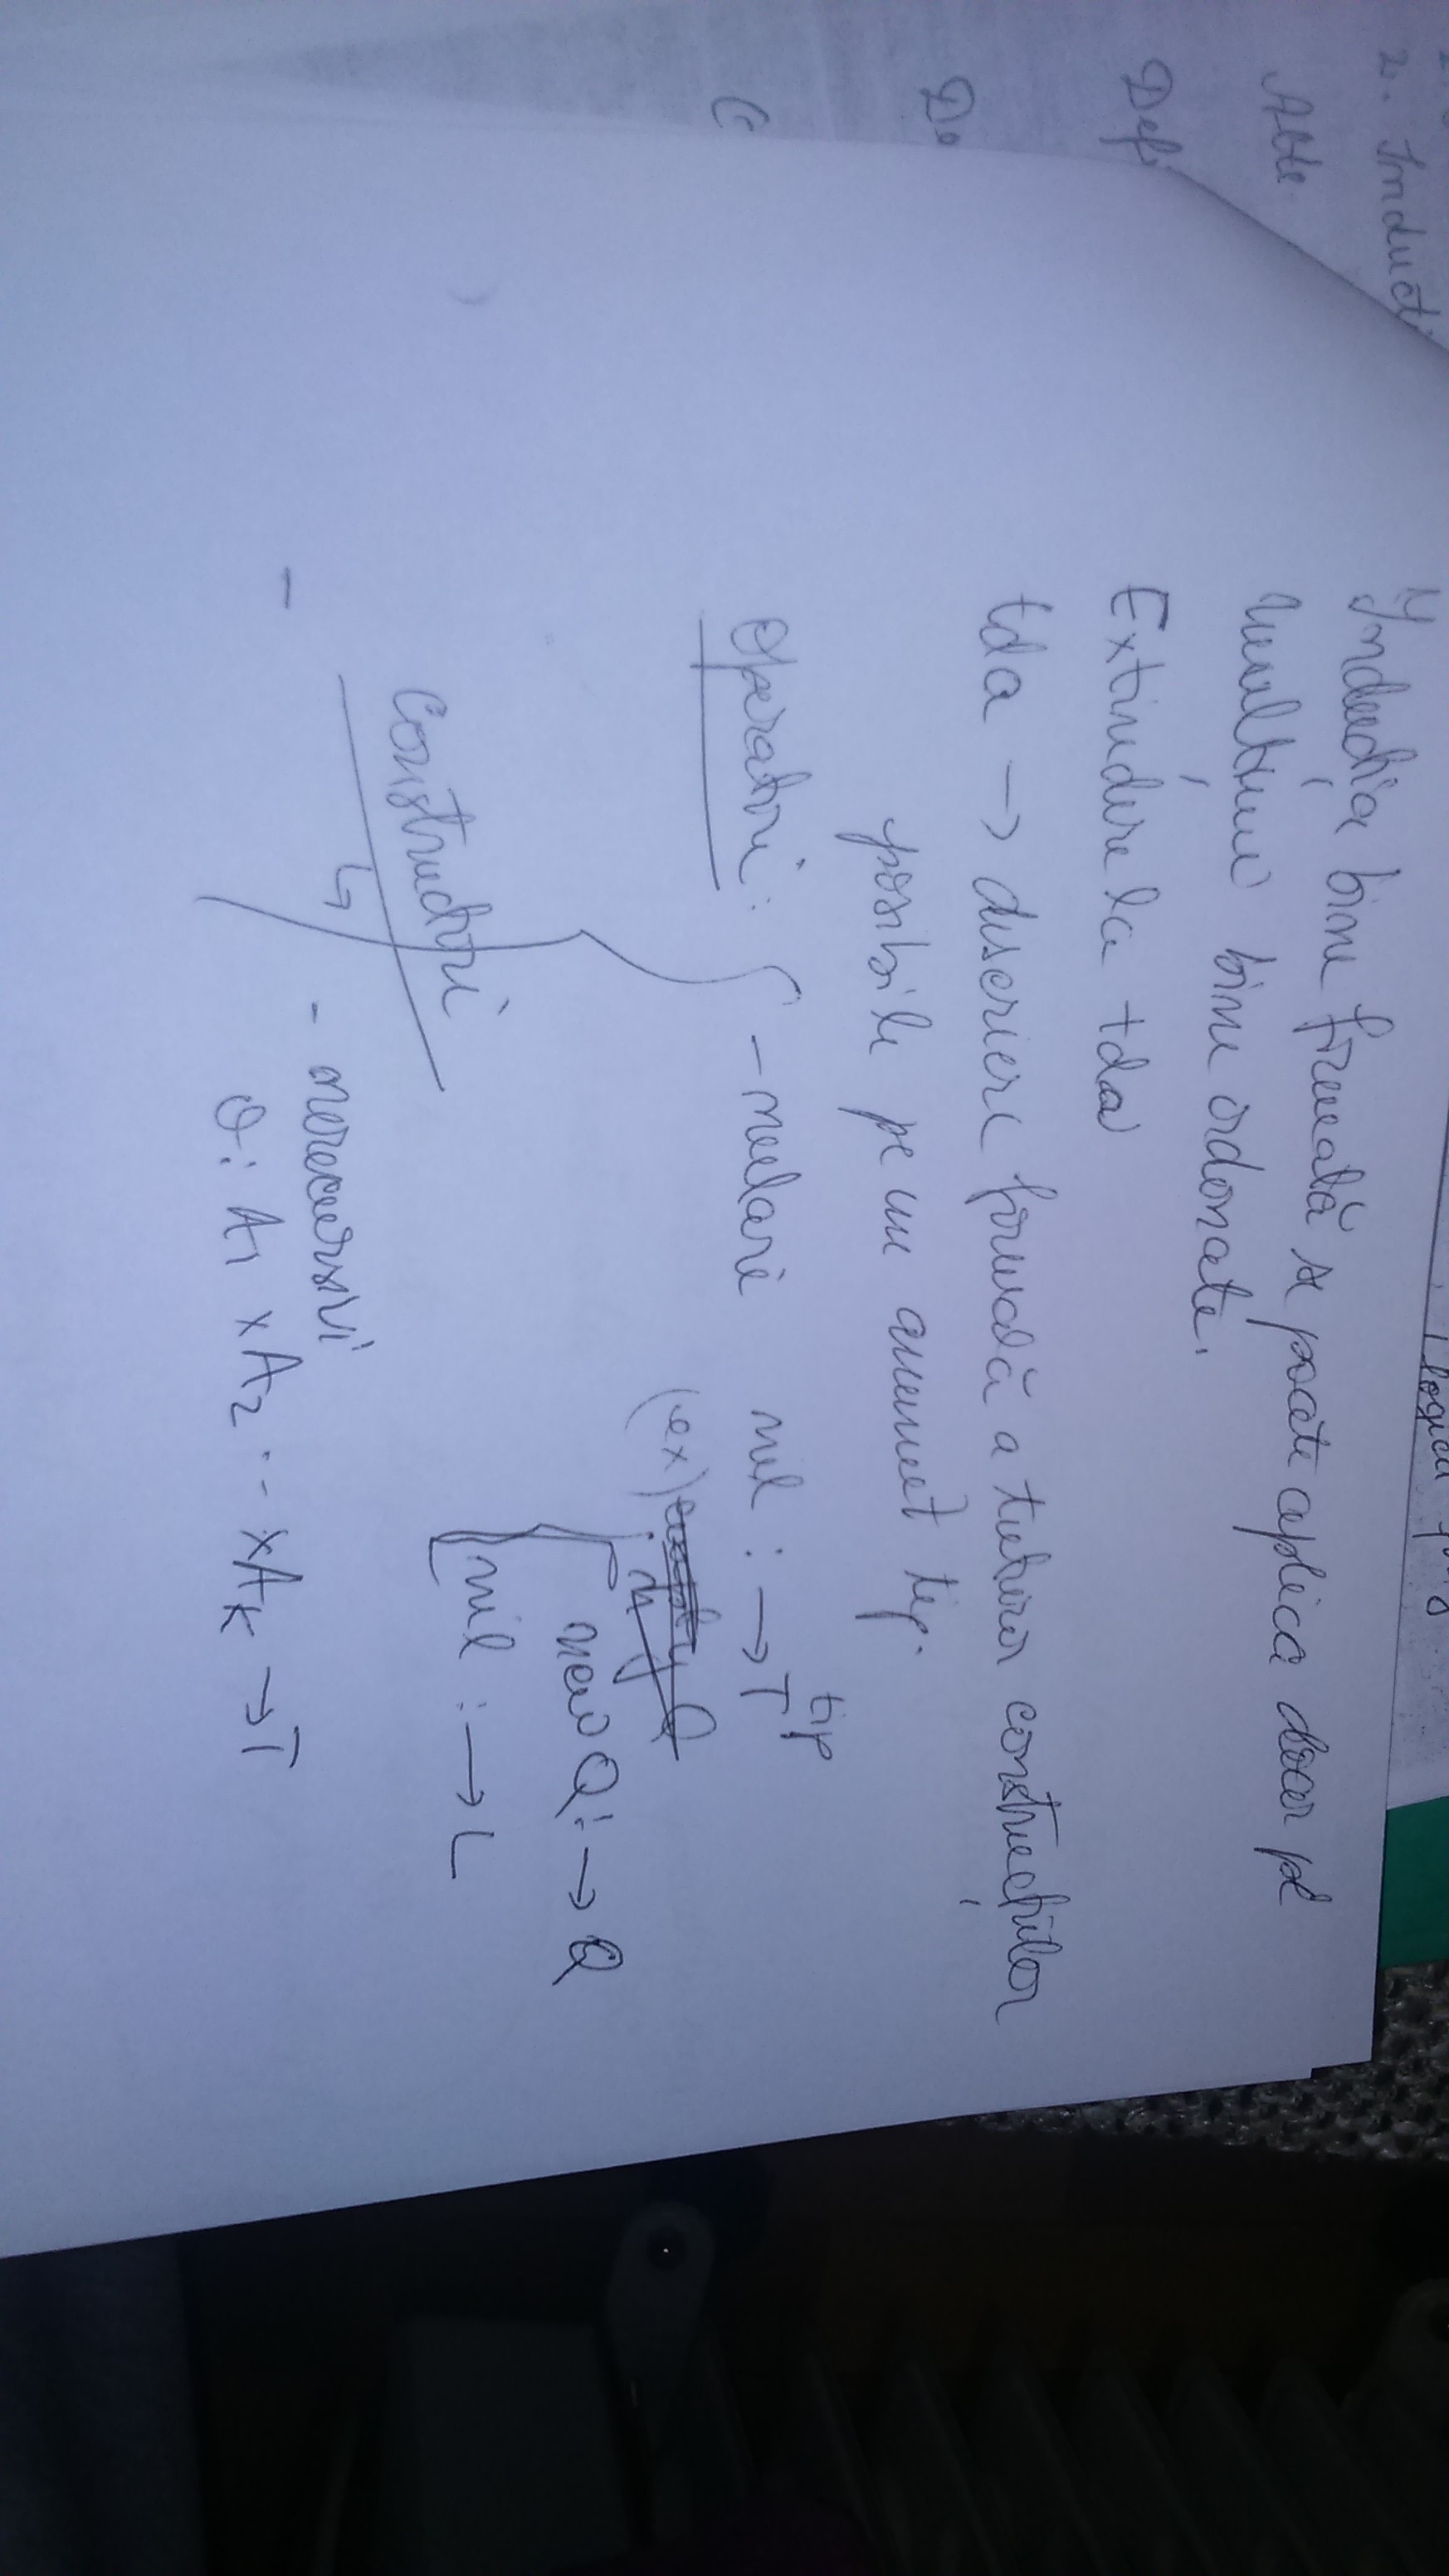 2. Inducti
Alte
Defi
De
C
logica
Inducția bine formată se poate aplica doar pe
mulțimi bine ordonate.
Extindere la tda
tda → descriere formală a tuturor construcțiilor
posibile pe un anumit tip.
Operatori: - nulari nul : → T tip
(ex)
new Q : → Q
nil : → L
Constructori
- nerecursivi
O : A1 x A2 .. x AK → T